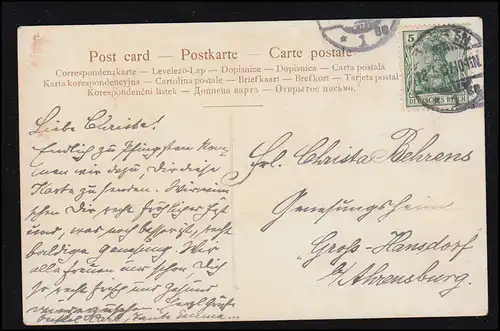 Post card – Postkarte – Carte postale
Correspondenzkarte – Levelező-Lap – Dopisnice – Dopisnica – Carta postala
Karta korespondencyjna – Cartolina postale – Brief kaart – Brefkort – Tarjeta postal
Korespondenční listek – Дописна карта – Открытое письмо.
5
DEUTSCHES REICH
Liebe Christa!
Endlich zu Pfingsten kom-
men wir dazu, Dir diese
Karte zu senden. Wir wün-
schen Dir, recht fröhliches Fest
und, was noch besser ist, recht
baldige Genesung. Wir
alle freuen uns schon Dich
so recht frisch und gesund
wiederzusehen.
Onkel Karl, Tante Emma
Frl. Christa Behrens
Genesungsheim
Groß-Hansdorf
b/Ahrensburg.